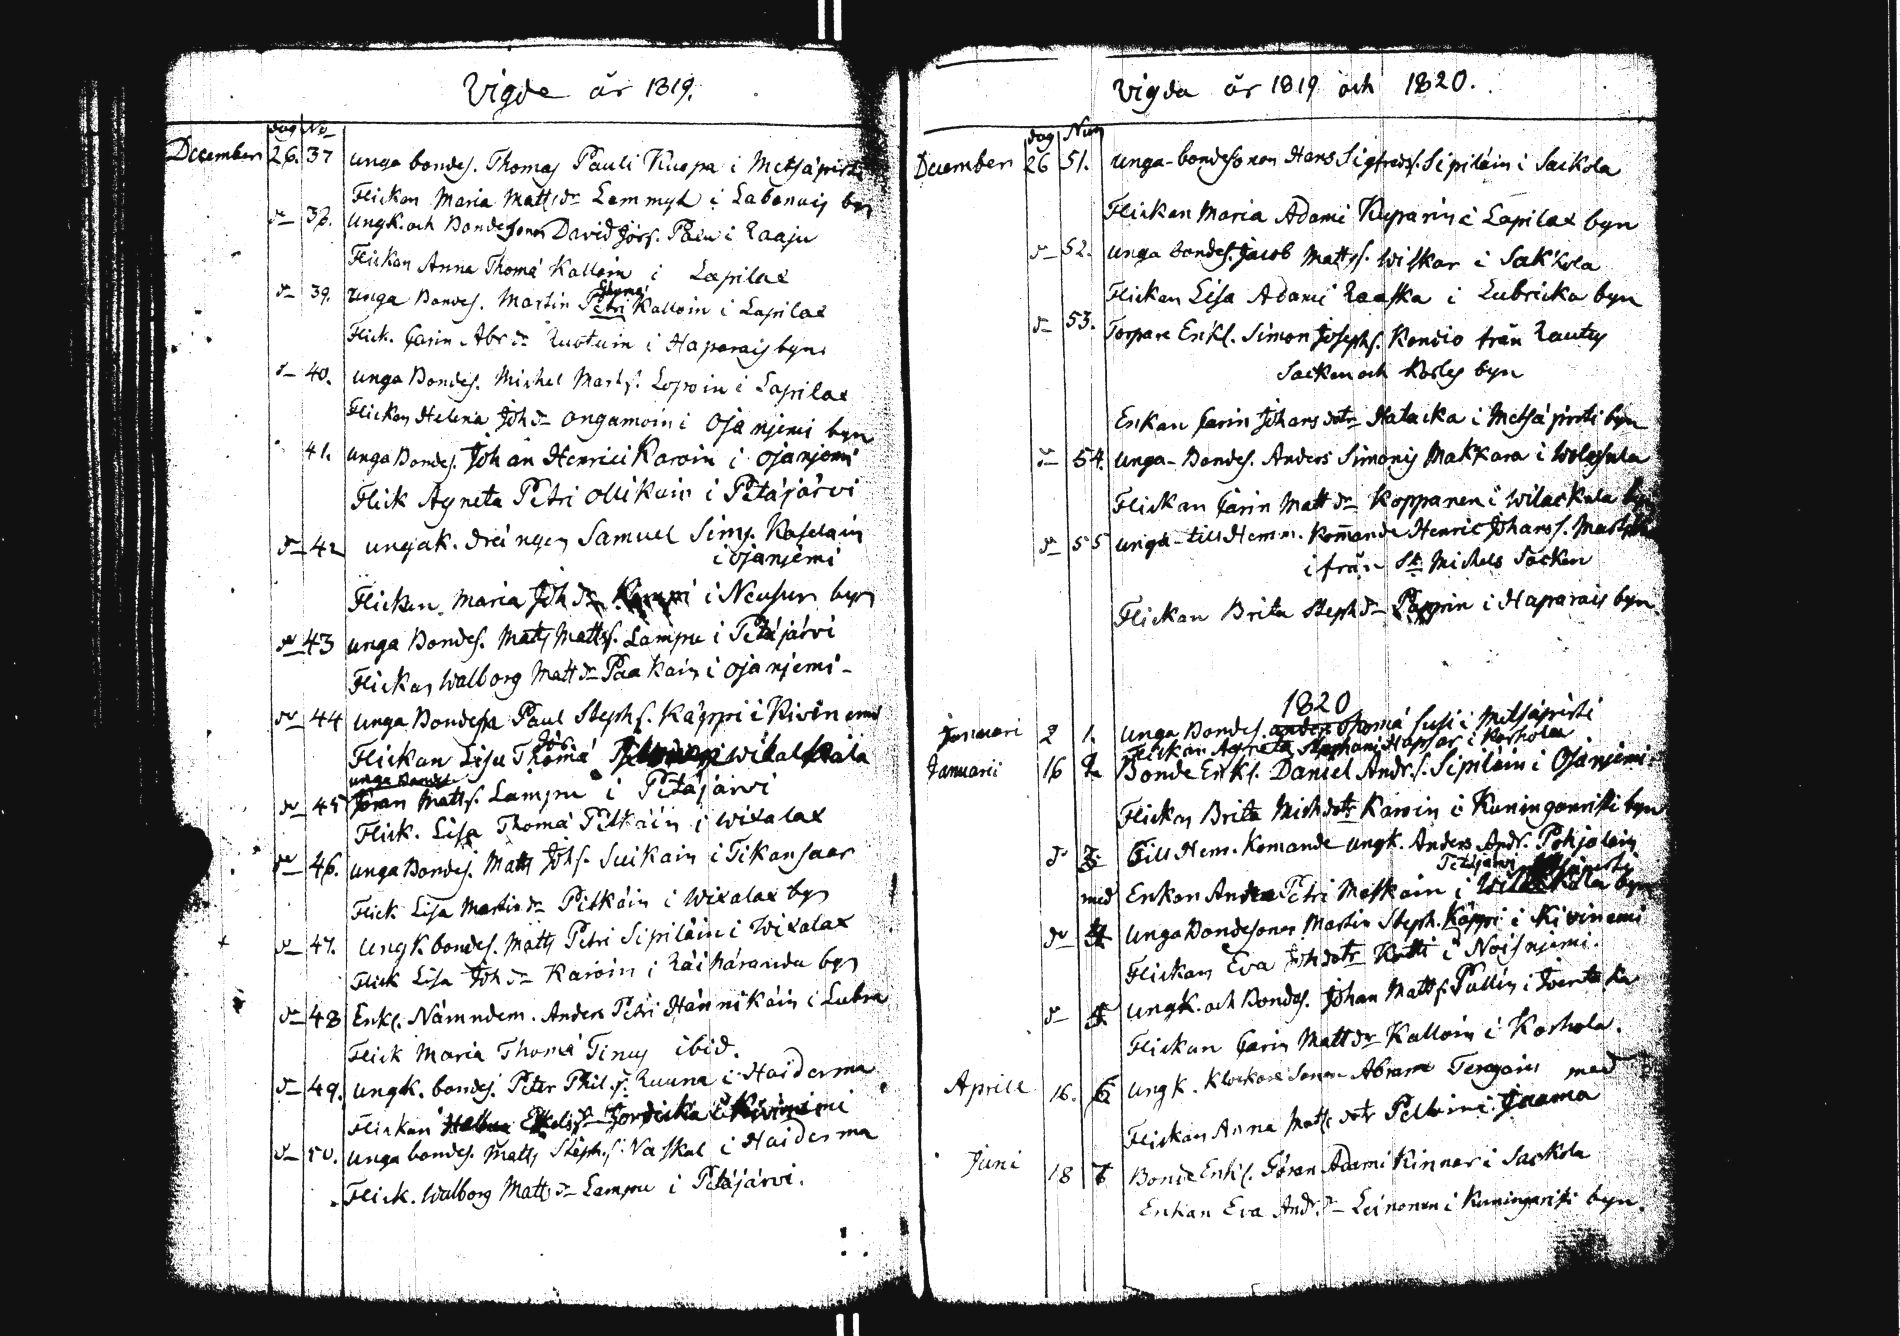 Vigde år 1819.
dag No
December 26. 37 unga bondes. Thomas Pauli Kuspa i Metsäpirti
Flickan Maria Matts dr Lemmyt i Labonais byn
dr 38. Ungk. och Bondesonen David Jörs. Pain i Raaju
Flickan Anna Thomæ Kalloin i Lapilax
dr 39. unga Bondes. Martin Petri Kalloin i Lapilax
Thomæ
Flick. Carin Abr dr Ruotuin i Haparais byn
dr 40. unga Bondes. Michel Marts. Lopoin i Lapilax
Flickan Helena Joh dr Ongamoin i Ojanjemi byn
41. unga Bondes. Johan Henrici Karoin i Ojanjemi
Flick Agneta Petri Ollikain i Petäjärvi
dr 42 ungak. drängen Samuel Sims. Kaselain
i Ojanjemi
Flickan Maria Joh dr i Neusun byn
dr 43 unga Bondes. Matts Mattss. Lampu i Petäjärvi
Flickan Walborg Matt dr Paakain i Ojanjemi
dr 44 unga Bondesn Paul Stephs. Käppi i Kivinemi
Flickan Lisa Thomæ
unga Bondes.
dr 45 Jöran Matts. Lampu i Petäjärvi
Flick. Lisa Thomæ Pitkäin i Wixalax
dr 46. unga Bondes. Matts Johs. Suikain i Tikansaar
Flick Lisa Martin dr Pitkäin i Wixalax byn
dr 47. Ungk. bondes. Matts Petri Sipiläin i Wixalax
Flick Lisa Joh dr Karoin i Räihäranda byn
dr 48 Enkl. Nämndem. Anders Petri Hännikäin i Lubra
Flick Maria Thomæ Tinus ibid.
dr 49. ungk. bondes. Peter Phil. s. Ruuna i Haiderma
Flickan i Kivinemi
dr 50. unga bondes. Matts Steph. s. Naskal i Haiderma
Flick. Walborg Matts dr Lampu i Petäjärvi.
Vigda år 1819 och 1820.
dag Num
December 26 51. unga bondesonen Hans Sigfreds. Sipiläin i Sackola
Flickan Maria Adami Kuparin i Lapilax byn
dr 52. unga bondes. Jacob Mattss. Wiskar i Sakkola
Flickan Lisa Adami Raaska i Lubricka byn
dr 53. Torpare Enkl. Simon Josephs. Kondio från Rautus
Socken och Korles byn
Enkan Carin Johans dotr Hatacka i Metsäpirti byn
dr 54. unga Bondes. Anders Simonis Makkara i Wolosula
Flickan Carin Matt dr Koppanen i Wilackala byn
dr 55 unga till Hemm. Komande Henric Johans s.
ifrån St. Michels Socken
Flickan Brita Steph dr Pappin i Haparais byn.
1820
Januari 2 1. unga Bondes. Thomæ Susi i Metsäpirti
Flickan Agneta Stephani Hapsar i Korhola
Januarii 16 2. Bonde Enkl. Daniel Andr. s. Sipiläin i Ojanjemi
Flickan Brita Mich dotr Karoin i Kuninganristi byn
dr 3. Till Hem. Komande ungk. Anders Andr. Pohjolain
Petäjärvi
med Enkan Petri Matskain i byn
dr 4 unga Bondesonen Martin Steph. Käppi i Kivinemi
Flickan Eva Joh dotr Kotti i Noisnjemi.
dr 5 Ungk. och Bondes. Johan Matts s. Pullin i
Flickan Carin Matt dr Kalloin i Korhola.
Aprill 16. 6 Ungk. Klockare Sonen Abram Tengoin med
Flickan Anna Matts dotr i Jaama
Juni 18 7 Bonde Enkl. Göran Adami Kinnar i Sackola
Enkan Eva Andr. dr Leinonen i Kuningaristi byn.